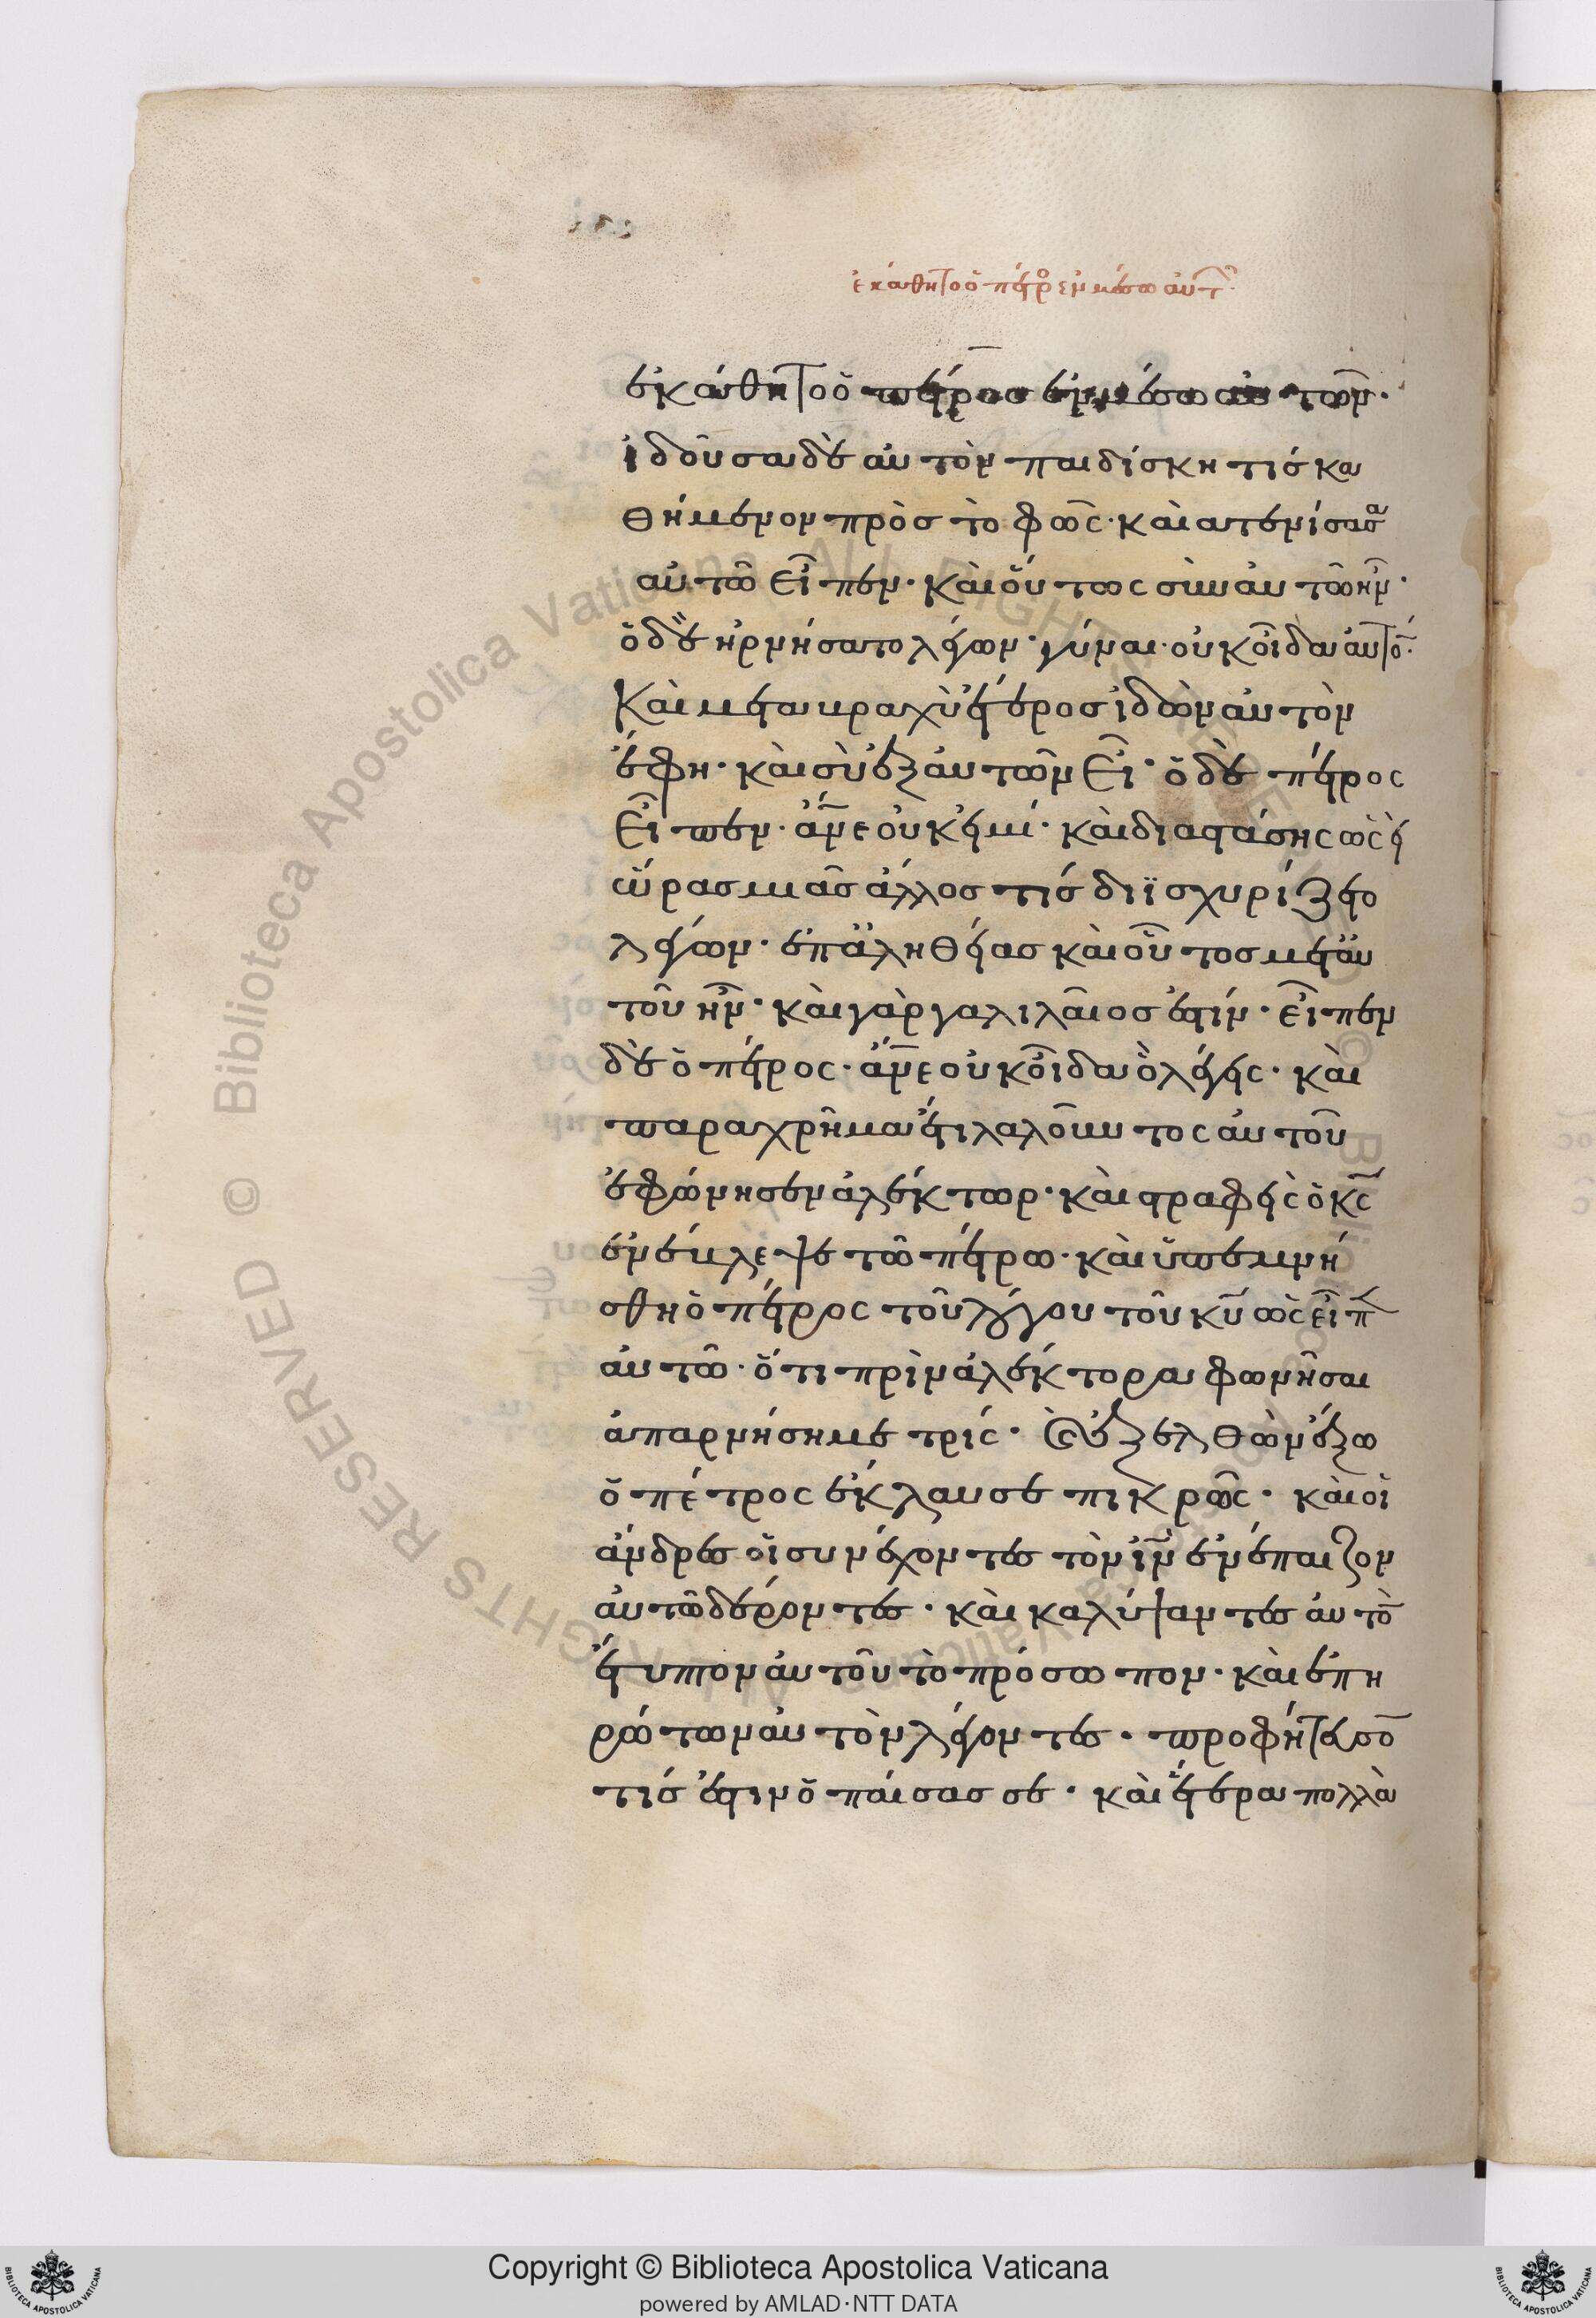 ἐκάθητο ὁ πέτρο ἐν μέσω αὐτῶ
ἐκάθητο ὁ πέτρος ἐν μέσω αὐτῶν·
ἰδοῦσα δὲ αὐτὸν παιδίσκη τίς κα
θήμενον πρὸς τὸ φῶς· καὶ ατενίσασα
αὐτῶ εἶπεν· καὶ οὗτως σὺν αὐτῶ ἦν·
ὁ δὲ ἠρνήσατο λέγων· γύναι οὐκ οἶδα αὐτό·
Καὶ μετα βραχὺ ἕτερος ἰδὼν αὐτὸν
ἔφη· καὶ σὺ ἐξ αὐτῶν εἶ· ὁ δὲ πέτρος
εἶπεν· ἄνε οὐκ εἰμί· καὶ διαστάσης ὡς εὶ
ὥρας μιᾶς ἄλλος τίς διϊσχυρίζετο
λέγων· ἐπ ἀληθείας καὶ οὗτος μετ αὐ
τοῦ ἦν· καὶ γὰρ γαλιλαῖος ἐστίν· εἶπεν
δὲ ὁ πέτρος· ἄνε οὐκ οἶδα ὃ λέγεις· καὶ
παραχρῆμα ἔτι λαλοῦντος αὐτοῦ
ἐφώνησεν ἀλέκτωρ· καὶ στραφεὶς ὁ κς
ἐνέβλεψε τῶ πέτρω· καὶ ὑπεμνή
σθη ὁ πέτρος τοῦ λόγου τοῦ κυ ὡς εἶπ
αὐτῶ· ὅτι πρὶν ἀλέκτορα φωνῆσαι
ἀπαρνήση με τρίς· Καὶ ἐξελθὼν ἔξω
ὁ πέτρος ἔκλαυσε πικρῶς· καὶ οἱ
ἄνδρες οἱ συνέχοντες τὸν ιν ἐνέπαιζον
αὐτῶ δέροντες· καὶ καλύψαντες αὐτὸ
ἔτυπτον αὐτοῦ τὸ πρόσωπον· καὶ ἐπη
ρώτων αὐτὸν λέγοντες· προφήτευσο
τίς ἐστιν ὁ παίσας σε· καὶ ἕτερα πολλὰ
© Biblioteca Apostolica Vaticana ALL RIGHTS RESERVED
Copyright © Biblioteca Apostolica Vaticana
powered by AMLAD·NTT DATA
BIBLIOTECA APOSTOLICA VATICANA
BIBLIOTECA APOSTOLICA VATICANA